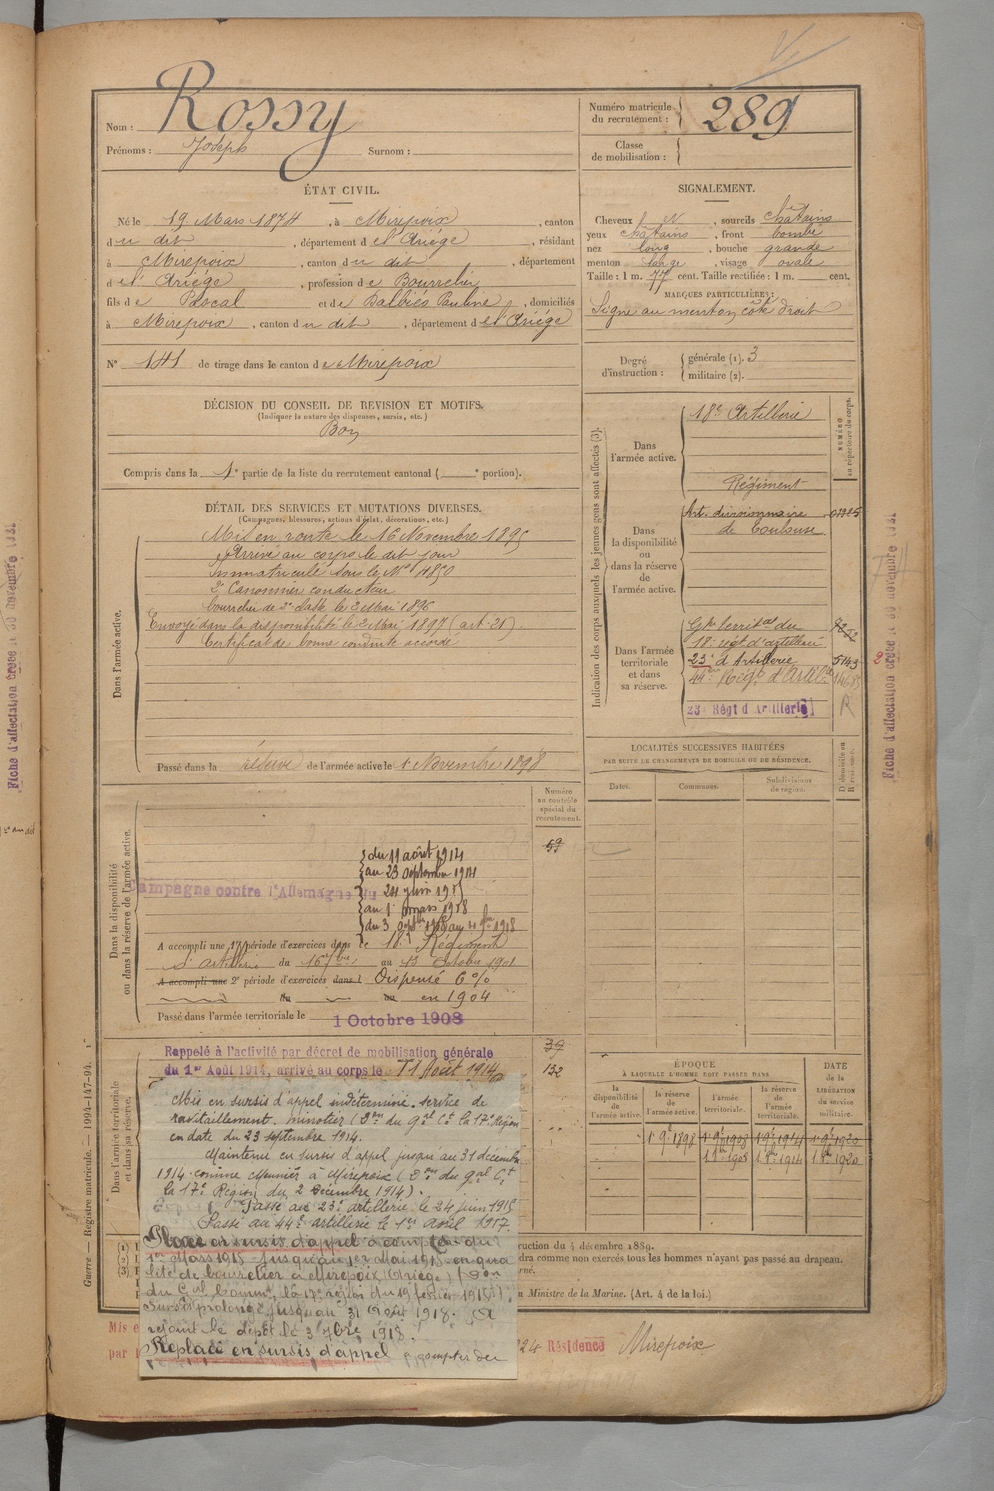 Rossy
Nom :
Prénoms : Joseph Surnom :
Numéro matricule
du recrutement : 289
Classe
de mobilisation :
ÉTAT CIVIL.
Né le 19 Mars 1874, à Mirepoix, canton
du dit, département de l'Ariège, résidant
à Mirepoix, canton du dit, département
de l'Ariège, profession de Bourrelier
fils de Pascal et de Pauline, domiciliés
à Mirepoix, canton du dit, département de l'Ariège
N° 141 de tirage dans le canton de Mirepoix
SIGNALEMENT.
Cheveux N, sourcils châtains
yeux châtains, front bombé
nez long, bouche grande
menton large, visage ovale
Taille : 1 m. 77 cent. Taille rectifiée : 1 m. cent.
MARQUES PARTICULIÈRES :
Signe au menton côté droit
Degré
d'instruction :
générale (1). 3
militaire (2).
DÉCISION DU CONSEIL DE REVISION ET MOTIFS.
(Indiquer la nature des dispenses, sursis, etc.)
Bon
Compris dans la 1e partie de la liste du recrutement cantonal ( e portion).
DÉTAIL DES SERVICES ET MUTATIONS DIVERSES.
(Campagnes, blessures, actions d'éclat, décorations, etc.)
Dans l'armée active.
Mis en route le 16 Novembre 1895
Arrivé au corps le dit jour
Immatriculé sous le N° 4850
2e Canonnier conducteur
bourrelier de 2e classe le 2 Mai 1896
Envoyé dans la disponibilité le 2 Mai 1897 (art. 21).
Certificat de bonne conduite accordé
Passé dans la réserve de l'armée active le 1 Novembre 1898
Indication des corps auxquels les jeunes gens sont affectés (3).
NUMÉRO
au répertoire du corps.
Dans
l'armée active.
18e Artillerie
Dans
la disponibilité
ou
dans la réserve
de
l'armée active.
Régiment
Art. divisionnaire
de Toulouse
Dans l'armée
territoriale
et dans
sa réserve.
Gpe territal du
18e regt d'artillerie
23e d'Artillerie 5143
44e Régt d'Artillerie
23e Régt d'Artillerie R
LOCALITÉS SUCCESSIVES HABITÉES
PAR SUITE DE CHANGEMENTS DE DOMICILE OU DE RÉSIDENCE.
Dates.
Communes.
Subdivisions
de région.
D domicile ou
R résidence.
Dans la disponibilité
ou dans la réserve de l'armée active.
Numéro
au contrôle
spécial du
recrutement.
59
Campagne contre l'Allemagne du
du 11 août 1914
au 23 septembre 1914
24 juin 1915
au 1 mars 1918
A accompli une 1re période d'exercices dans le 18e Régiment
d'artillerie du 16 au 13 octobre 1901
A accompli une 2e période d'exercices dans l Dispensé 6%
en 1904
Passé dans l'armée territoriale le 1 Octobre 1908
Dans l'armée territoriale
et dans sa réserve.
39
132
Rappelé à l'activité par décret de mobilisation générale
du 1er Août 1914, arrivé au corps le 11 Août 1914
Mis en sursis d'appel indéterminé. service de
ravitaillement. minotier (Don du Gal Ct la 17e Région
en date du 23 septembre 1914.
Maintenu en sursis d'appel jusqu'au 31 décembre
1914 comme Meunier à Mirepoix (Don du Gal Ct
la 17e Région du 2 Décembre 1914).
Passé au 23e artillerie le 24 juin 1915
Passé au 44e artillerie le 1er avril 1917.
Placé en sursis d'appel à compter du
1er Mars 1918 jusqu'au 1er Mai 1918 en qua
lité de bourrelier à Mirepoix (Ariège) (Don
du Gal Comm. la 17e région du 19 février 1918).
Sursis prolongé jusqu'au 31 Août 1918. A
rejoint le dépôt le 3 7bre 1918.
Replacé en sursis d'appel à compter du
ÉPOQUE
À LAQUELLE L'HOMME DOIT PASSER DANS
la
disponibilité
de
l'armée active.
la réserve
de
l'armée active.
l'armée
territoriale.
la réserve
de
l'armée
territoriale.
DATE
de la
LIBÉRATION
du service
militaire.
1 9bre 1898 1 9bre 1908 1 9bre 1914 1 9bre 1920
(1)
(2)
(3)
truction du 4 décembre 1889.
dra comme non exercés tous les hommes n'ayant pas passé au drapeau.
Ministre de la Marine. (Art. 4 de la loi.)
Mis e
par
24 Résidence Mirepoix
Guerre — Registre matricule. — 1994-147-94.
Fiche d'affectation créée le 30 novembre
Fiche d'affectation créée le 30 novembre